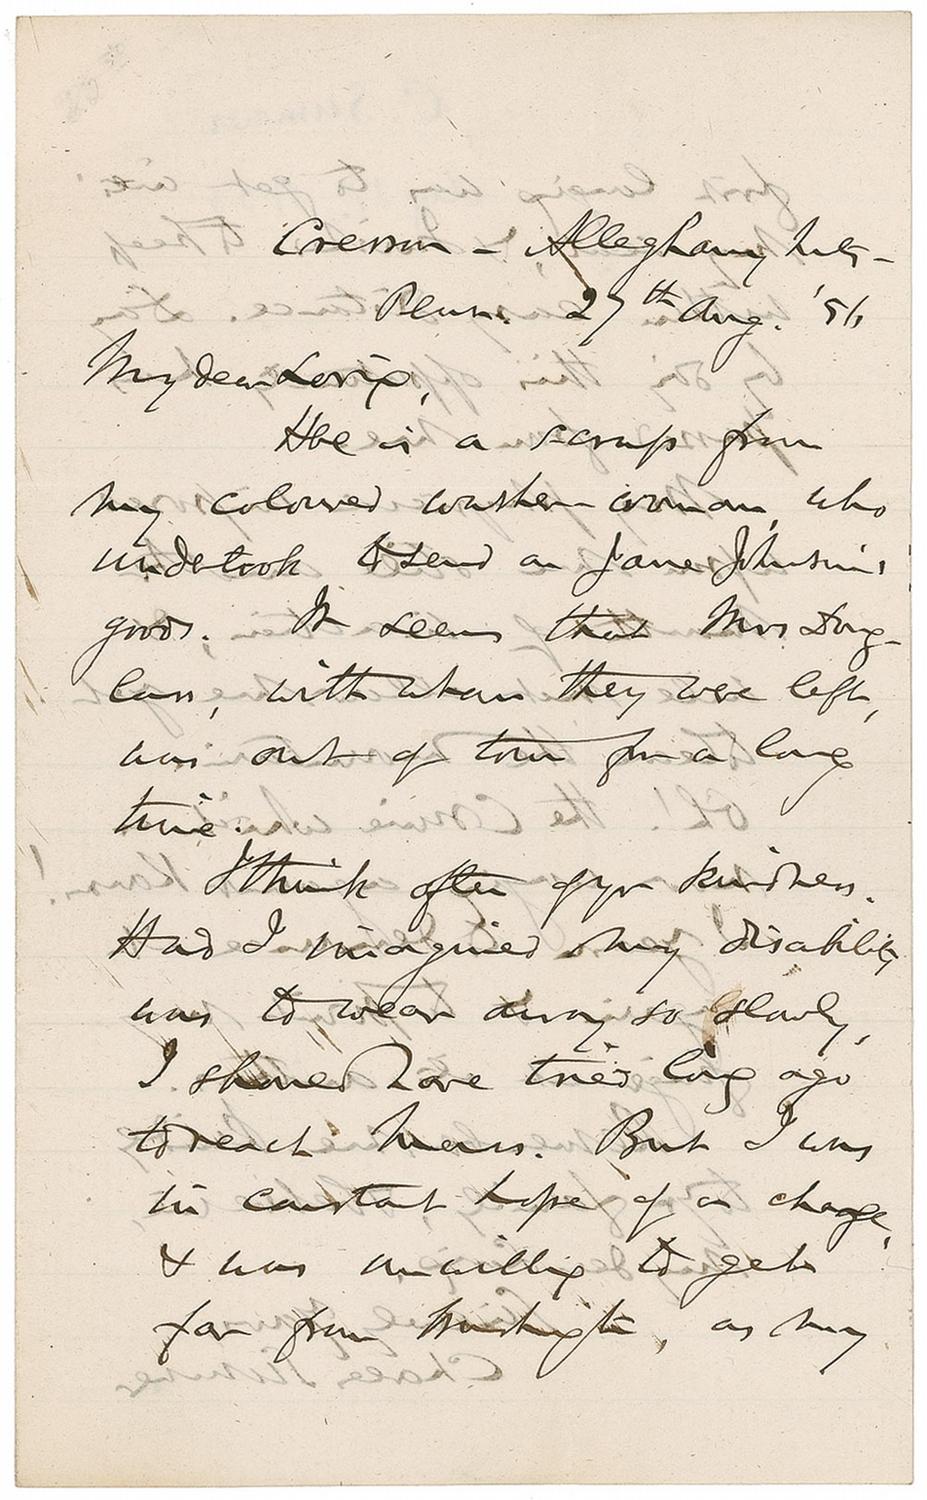 Cresson - Alleghany Mts -
Penn. 27th Aug. '56
My dear Loring,
Here is a scrap from
my coloured washer-woman, who
undertook to send on Jane Johnson's
goods. It seems that Mrs Doug-
lass, with whom they were left,
was out of town for a long
time.
I think often of yr kindness.
Had I imagined my disability
was to wear away so slowly,
I should have tried long ago
to reach Mass. But I was
in constant hope of a change,
& was unwilling to get
far from Washington, as my